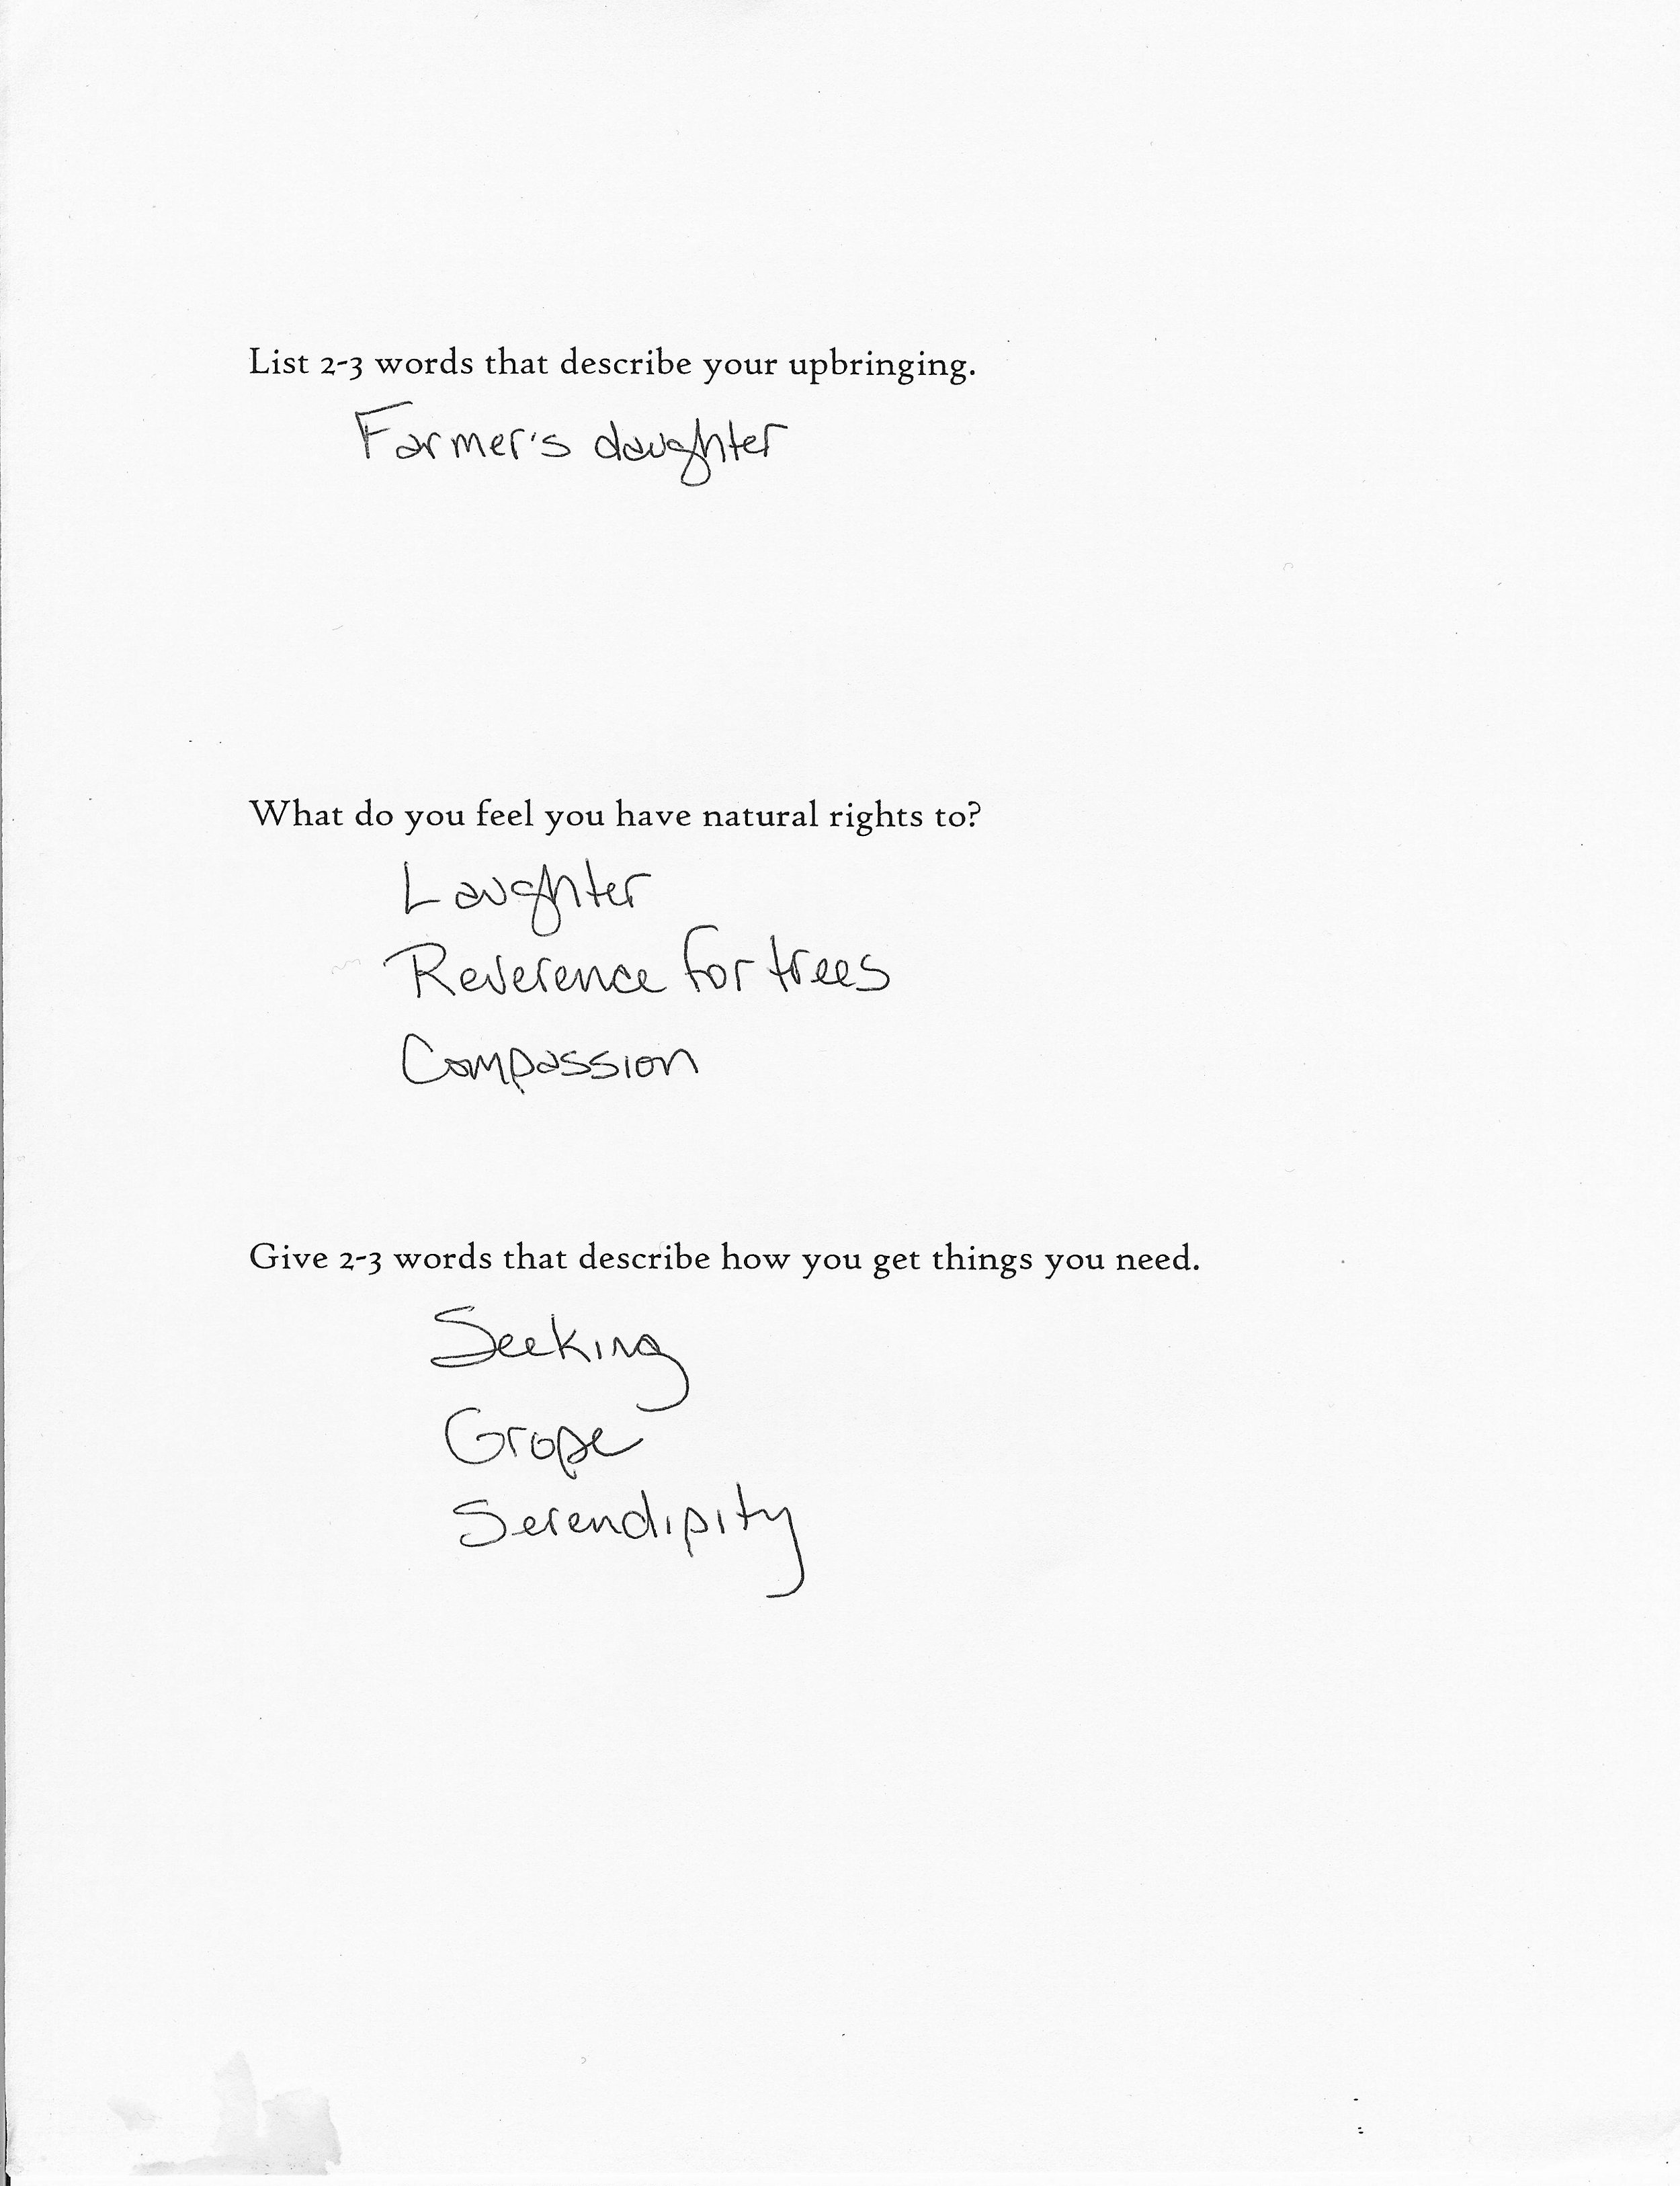 List 2-3 words that describe your upbringing.
Farmer's daughter
What do you feel you have natural rights to?
Laughter
Reverence for trees
Compassion
Give 2-3 words that describe how you get things you need.
Seeking
Grope
Serendipity